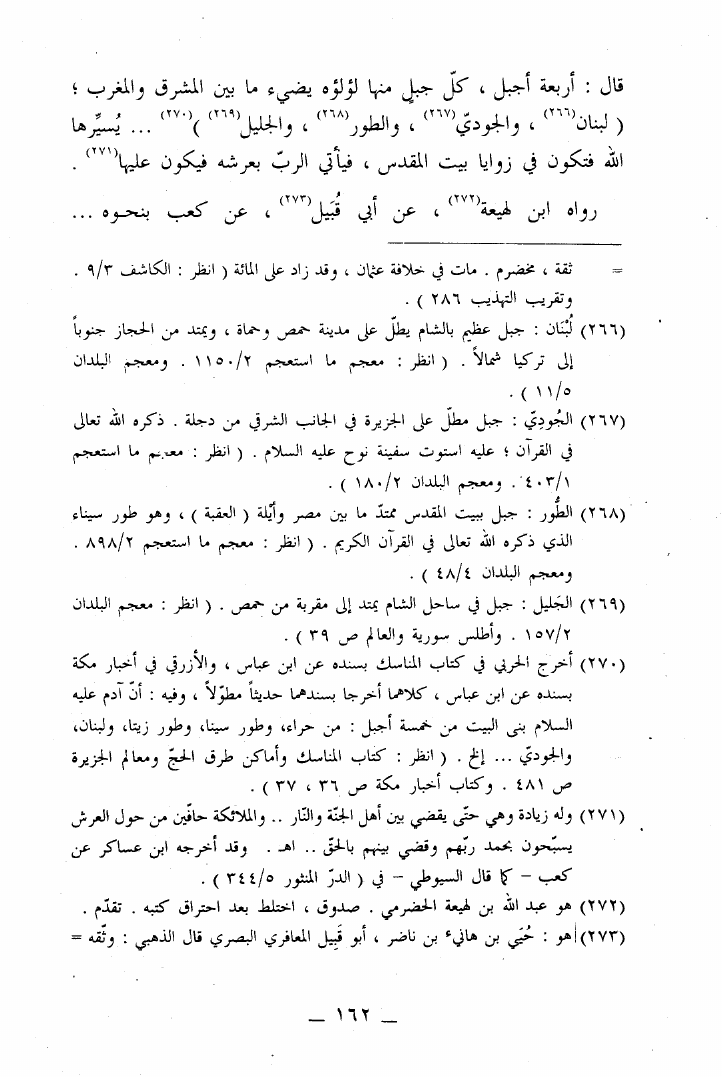 قال : أربعة أجبل ، كلّ جبلٍ منها لؤلؤه يضيء ما بين المشرق والمغرب ؛
( لبنان(٢٦٦) ، والجوديّ(٢٦٧) ، والطور(٢٦٨) ، والجليل(٢٦٩) )(٢٧٠) ... يُسيِّرها
الله فتكون في زوايا بيت المقدس ، فيأتي الربّ بعرشه فيكون عليها(٢٧١) .
رواه ابن لهيعة(٢٧٢) ، عن أبي قُبَيل(٢٧٣) ، عن كعب بنحوه ...
= ثقة ، مخضرم . مات في خلافة عثمان ، وقد زاد على المائة ( انظر : الكاشف ٩/٣ .
وتقريب التهذيب ٢٨٦ ) .
(٢٦٦) لُبْنَان : جبل عظيم بالشام يطلّ على مدينة حمص وحماة ، ويمتد من الحجاز جنوباً
إلى تركيا شمالاً . ( انظر : معجم ما استعجم ١١٥٠/٢ . ومعجم البلدان
١١/٥ ) .
(٢٦٧) الجُودِيّ : جبل مطلّ على الجزيرة في الجانب الشرقي من دجلة . ذكره الله تعالى
في القرآن ؛ عليه استوت سفينة نوح عليه السلام . ( انظر : معجم ما استعجم
٤٠٣/١ . ومعجم البلدان ١٨٠/٢ ) .
(٢٦٨) الطُّور : جبل ببيت المقدس ممتدّ ما بين مصر وأيْلة ( العقبة ) ، وهو طور سيناء
الذي ذكره الله تعالى في القرآن الكريم . ( انظر : معجم ما استعجم ٨٩٨/٢ .
ومعجم البلدان ٤٨/٤ ) .
(٢٦٩) الجَليل : جبل في ساحل الشام يمتد إلى مقربة من حمص . ( انظر : معجم البلدان
١٥٧/٢ . وأطلس سورية والعالم ص ٣٩ ) .
(٢٧٠) أخرج الحربي في كتاب المناسك بسنده عن ابن عباس ، والأزرقي في أخبار مكة
بسنده عن ابن عباس ، كلاهما أخرجا بسندهما حديثاً مطوّلاً ، وفيه : أنّ آدم عليه
السلام بنى البيت من خمسة أجبل : من حراء، وطور سينا، وطور زيتا، ولبنان،
والجودي ... إلخ . ( انظر : كتاب المناسك وأماكن طرق الحجّ ومعالم الجزيرة
ص ٤٨١ . وكتاب أخبار مكة ص ٣٦ ، ٣٧ ) .
(٢٧١) وله زيادة وهي حتّى يقضي بين أهل الجنّة والنّار .. والملائكة حافّين من حول العرش
يسبّحون بحمد ربّهم وقضي بينهم بالحقّ .. اهـ . وقد أخرجه ابن عساكر عن
كعب – كما قال السيوطي – في ( الدرّ المنثور ٣٤٤/٥ ) .
(٢٧٢) هو عبد الله بن لهيعة الحضرمي . صدوق ، اختلط بعد احتراق كتبه . تقدّم .
(٢٧٣) هو : حُيَي بن هانيء بن ناضر ، أبو قَبِيل المعافري البصري قال الذهبي : وثّقه =
— ١٦٢ —